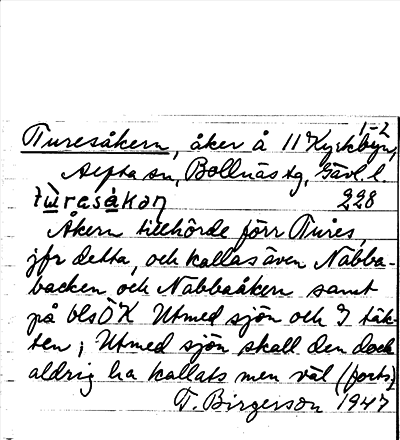 1-2
Turesåkern, åker å 11 Kyrkbyn,
Alfta sn, Bollnäs tg, Gävl. l.
tùresåkən 228
Åkern tillhörde förr Tures,
jfr detta, och kallas även Nabba-
backen och Nabbaåkern samt
på blsÖK Utmed sjön och I täk-
ten; Utmed sjön skall den dock
aldrig ha kallats men väl (forts)
T. Birgerson 1947